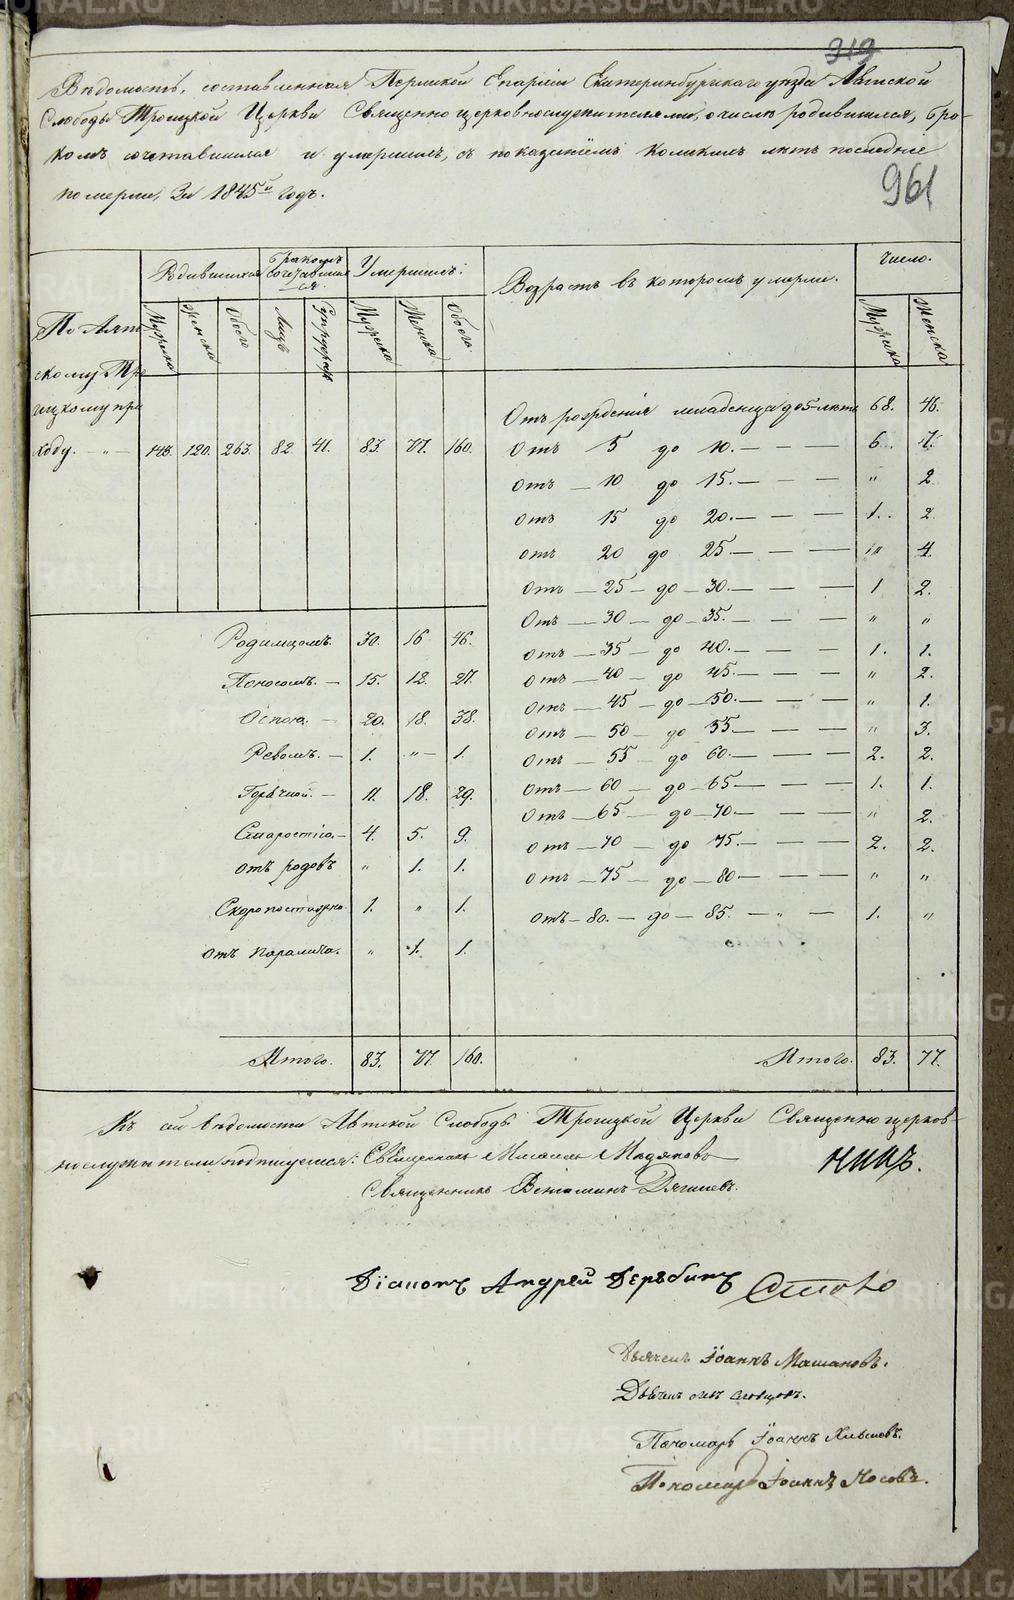 319
Вѣдомость, составленная Пермской Епархіи Екатеринбургскаго уѣзда Аятской
Слободы Троицкой Церкви Священноцерковнослужителями, о числѣ родившихся, бра-
комъ сочетавшихся и умершихъ, съ показаніемъ коликихъ лѣтъ послѣдніе
померли, За 1845й годъ.
961
Родившихся
Бракомъ сочетавшихся.
Умершихъ:
Возрастъ въ которомъ умерли.
Число.
Мужска
Женска
Обоего
Лицъ
Мужска
Женска
Обоего.
Мужска
Женска
По Аят-
скому Тро-
ицкому при
ходу. — " —
143. 120. 263. 82. 41. 83. 77. 160.
Отъ рожденія младенца до 5 лѣтъ 68. 46.
Отъ 5 до 10. — — — 6. 7.
Отъ — 10 до 15. — — — " 2.
Отъ 15 до 20. — — — 1. 2.
Отъ 20 до 25. — — — " 4.
Отъ — 25 — до — 30. — — — 1 2.
Отъ — 30 — до — 35. — — — " "
Отъ — 35 — до 40. — — — 1. 1.
Отъ — 40 — до 45. — — — " 2.
Отъ — 45 — до — 50. — — — " 1.
Отъ — 50 — до 55. — — — " 3.
Отъ — 55 — до 60. — — — 2. 2.
Отъ — 60 — до — 65 — — — 1. 1.
Отъ — 65 — до — 70. — — — " 2.
Отъ — 70 — до 75. — — — 2. 2.
Отъ — 75 — до — 80 — — — " "
Отъ — 80. — до — 85. — " — 1. "
Родимцомъ. 30. 16 46.
Поносомъ. — 15. 12. 27.
Оспою. — 20. 18. 38.
Ревомъ. — 1. " — 1.
Горячкой. — 11. 18. 29.
Старостію. — 4. 5. 9.
отъ родовъ " 1. 1.
Скоропостижно. 1. " 1.
отъ паралича. " 1. 1.
Итого. 83. 77. 160.
Итого. 83. 77.
Къ сей вѣдомости Аятской Слободы Троицкой Церкви Священноцерков-
нослужители подписуемся: Священникъ
Священникъ Веніаминъ Дягилевъ.
Діаконъ Андрей Дерябинъ
Дьячекъ Іоаннъ Машановъ.
Дьячекъ
Пономарь Іоаннъ
Пономарь Іоаннъ Носовъ.
METRIKI.GASO-URAL.RU